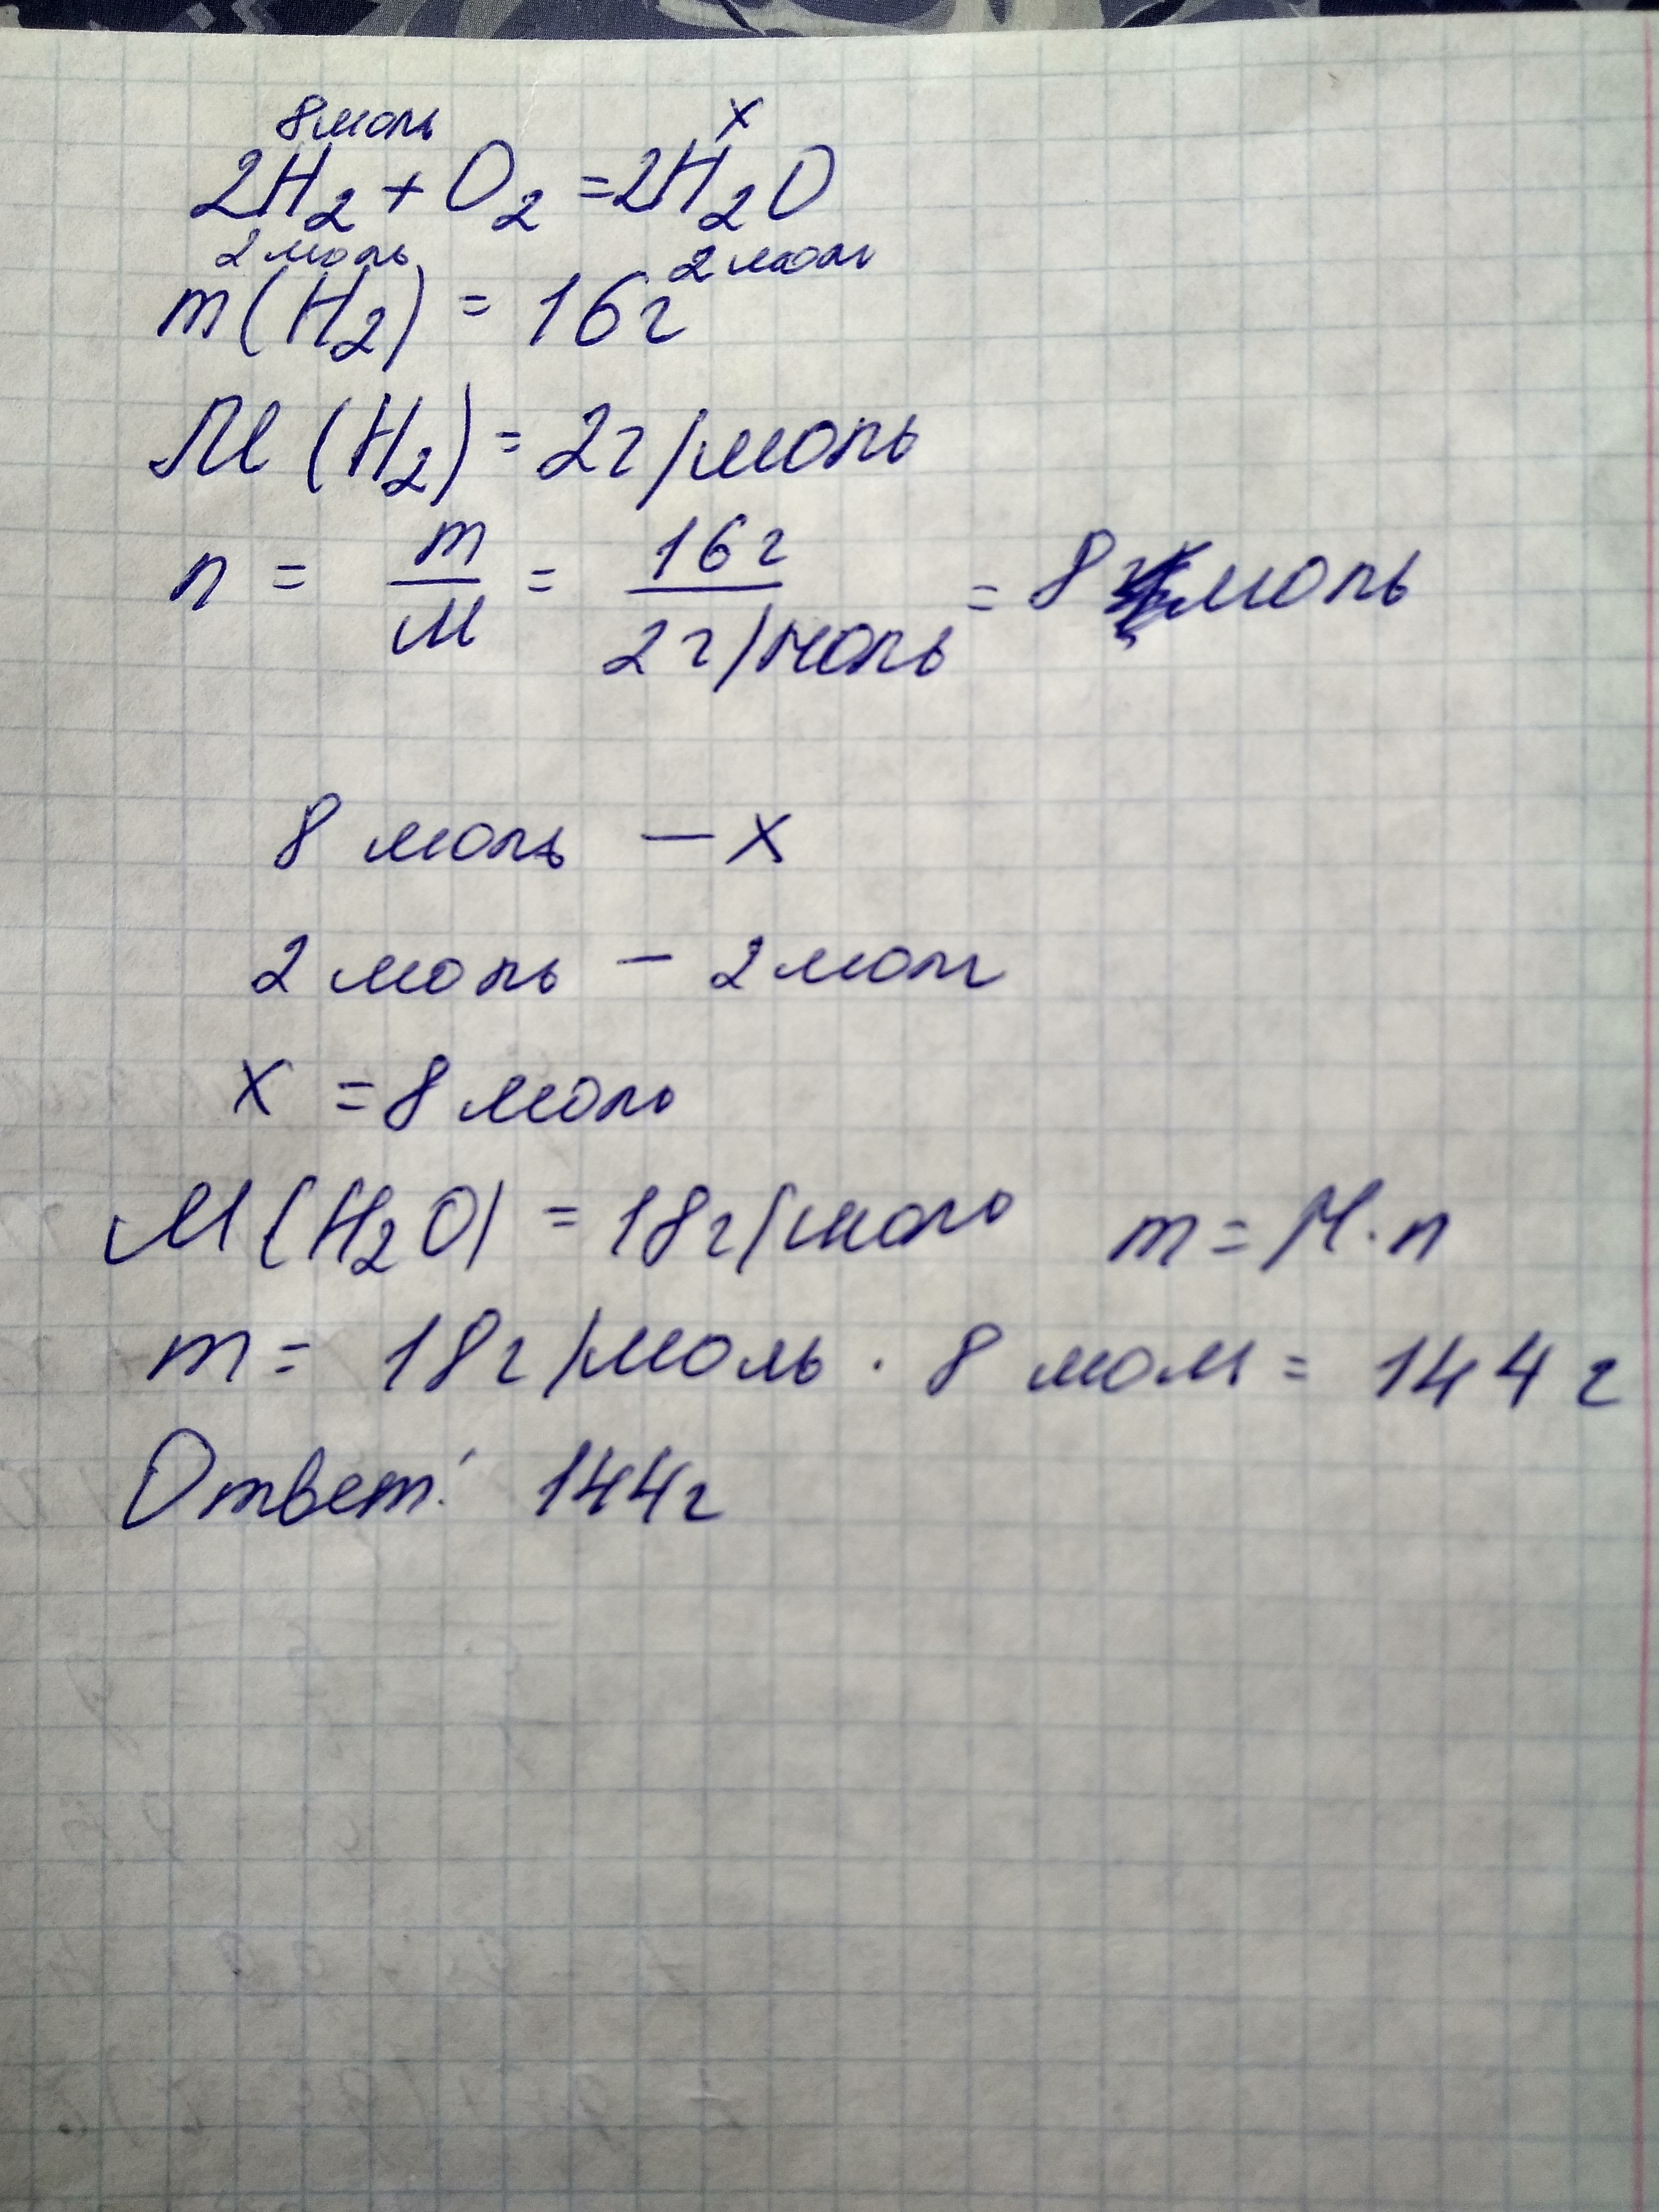 8моль x
2H₂ + O₂ = 2H₂O
2 моль 2 моль
m(H₂) = 16г
M(H₂) = 2г/моль
n = m/M = 16г/2г/моль = 8 моль
8 моль — x
2 моль – 2 моль
x = 8 моль
M(H₂O) = 18г/моль m = M · n
m = 18г/моль · 8 моль = 144 г
Ответ: 144г